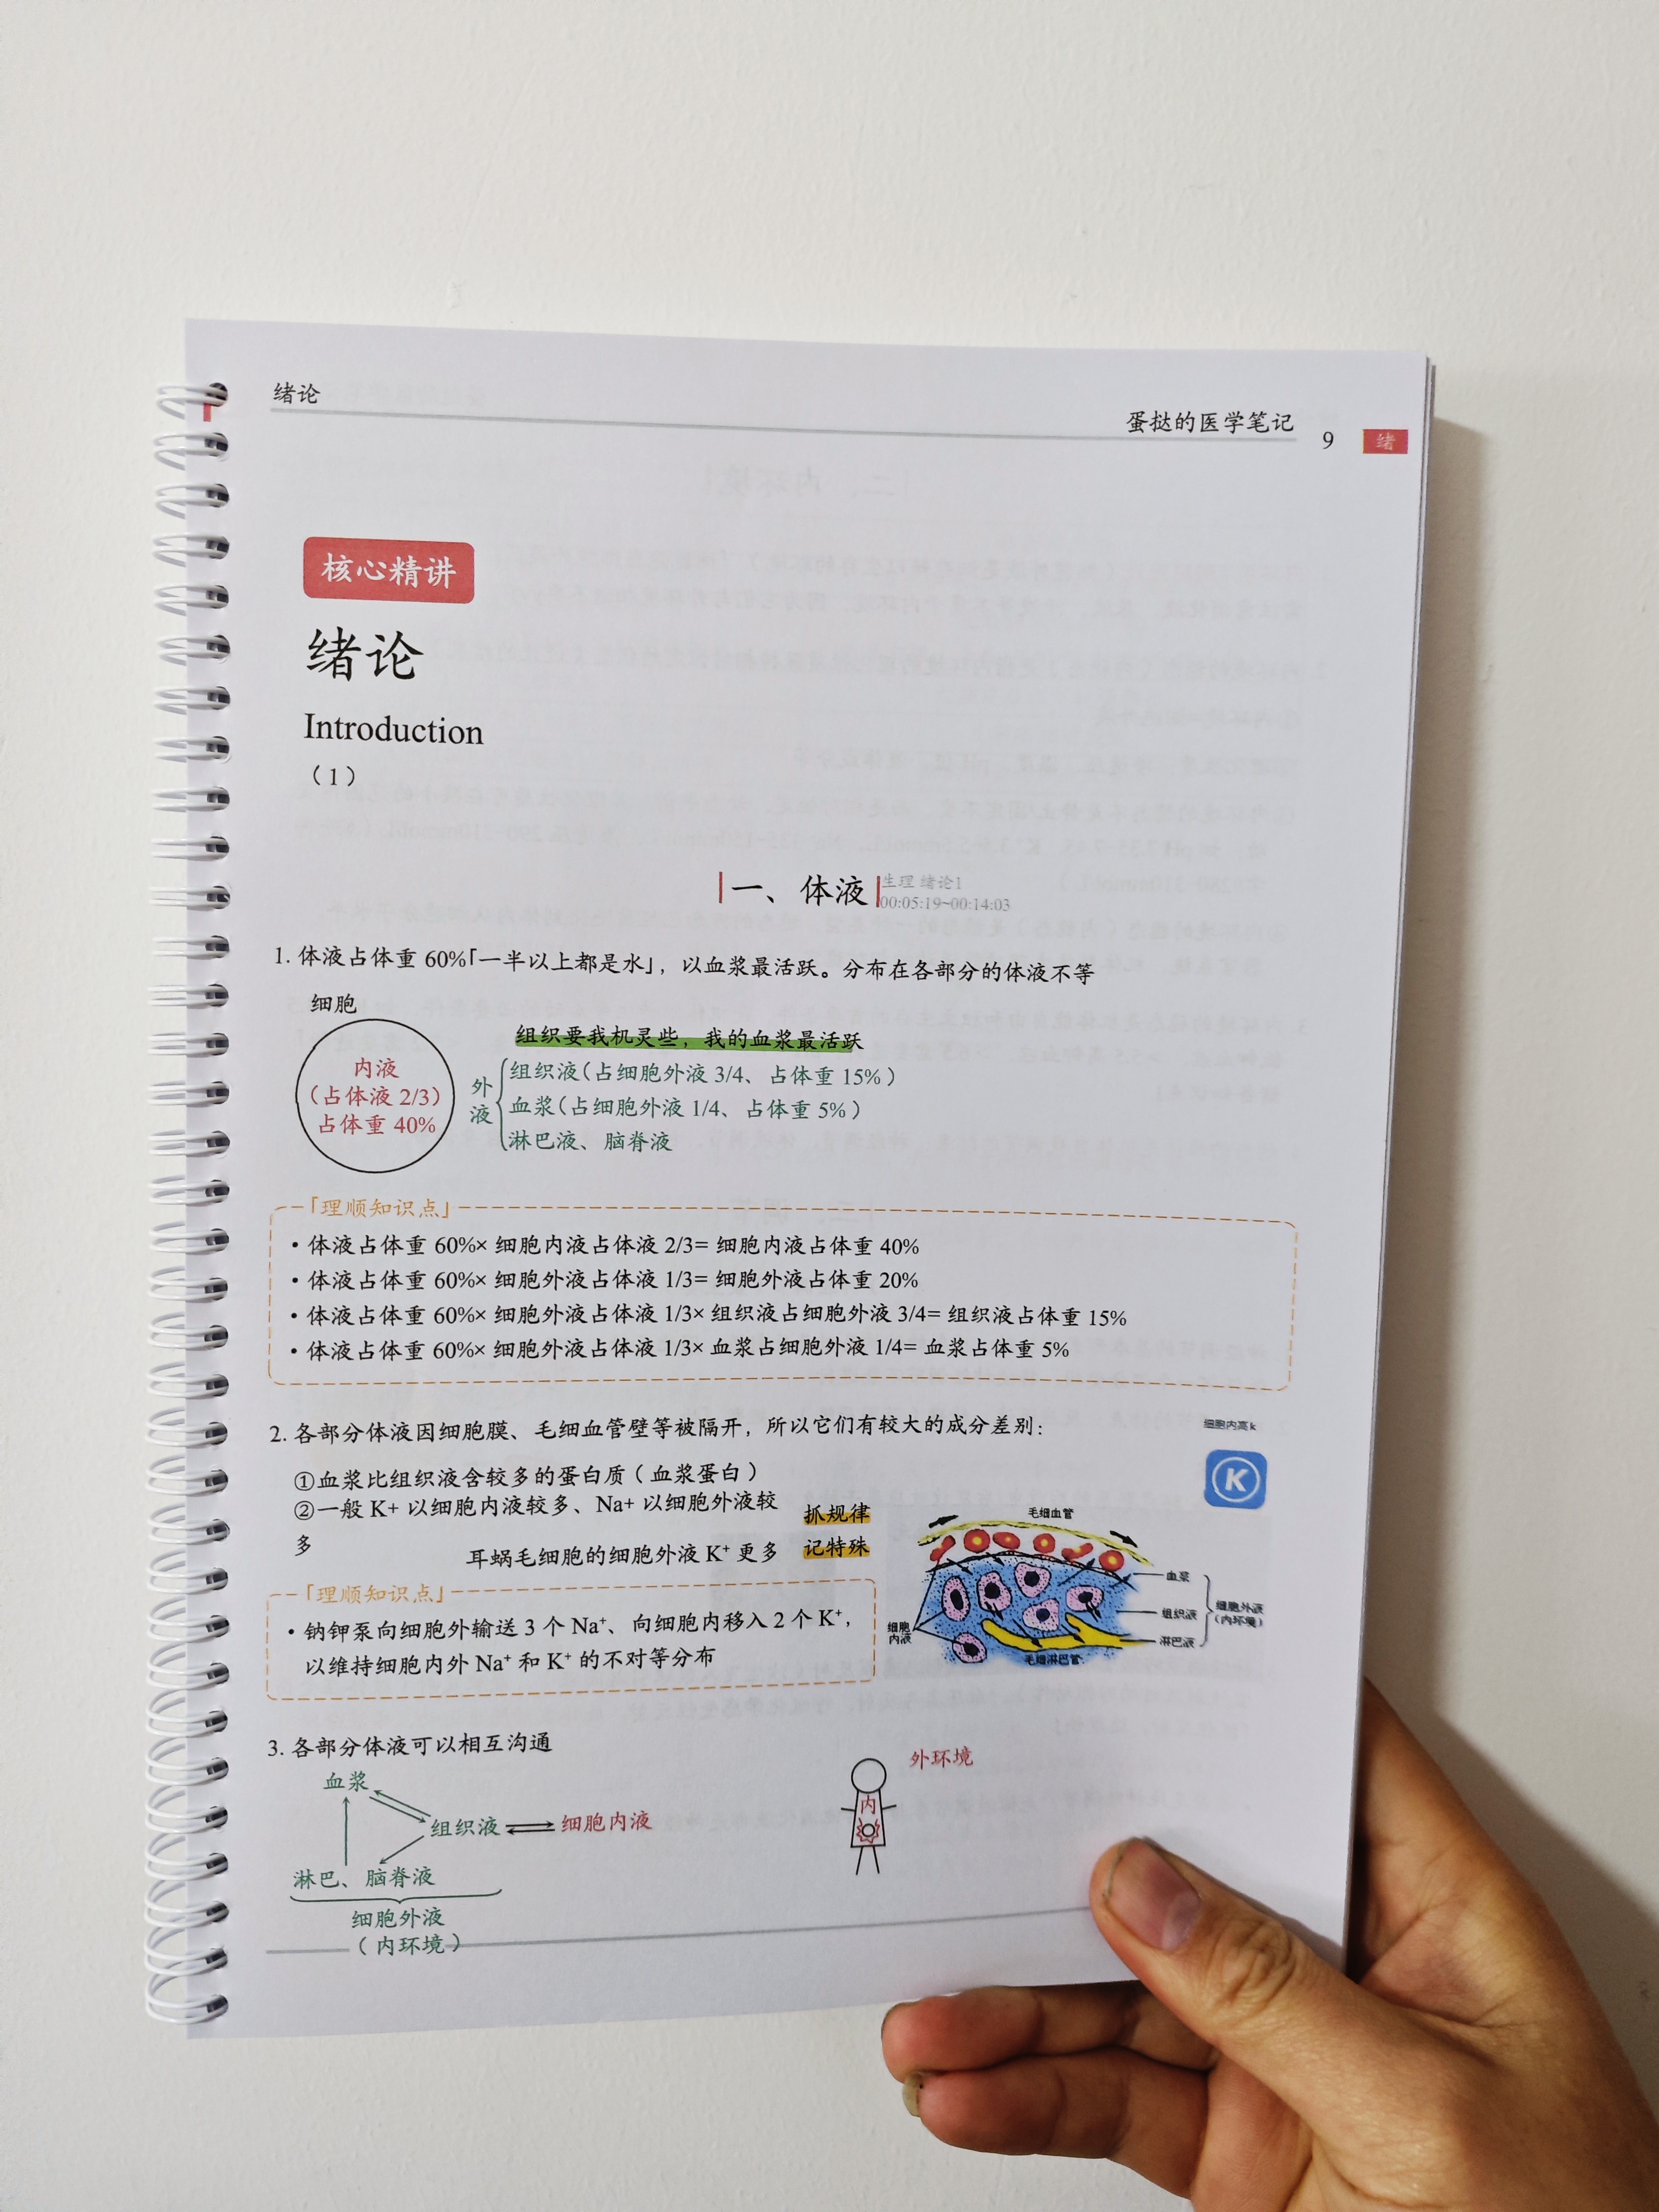 绪论
蛋挞的医学笔记
9
绪
核心精讲
绪论
Introduction
（1）
一、体液
生理 绪论1
00:05:19~00:14:03
1. 体液占体重 60%「一半以上都是水」，以血浆最活跃。分布在各部分的体液不等
细胞
内液
（占体液 2/3）
占体重 40%
组织要我机灵些，我的血浆最活跃
外液
组织液（占细胞外液 3/4、占体重 15%）
血浆（占细胞外液 1/4、占体重 5%）
淋巴液、脑脊液
「理顺知识点」
· 体液占体重 60%× 细胞内液占体液 2/3= 细胞内液占体重 40%
· 体液占体重 60%× 细胞外液占体液 1/3= 细胞外液占体重 20%
· 体液占体重 60%× 细胞外液占体液 1/3× 组织液占细胞外液 3/4= 组织液占体重 15%
· 体液占体重 60%× 细胞外液占体液 1/3× 血浆占细胞外液 1/4= 血浆占体重 5%
2. 各部分体液因细胞膜、毛细血管壁等被隔开，所以它们有较大的成分差别：
①血浆比组织液含较多的蛋白质（血浆蛋白）
②一般 K+ 以细胞内液较多、Na+ 以细胞外液较
多
耳蜗毛细胞的细胞外液 K⁺ 更多
抓规律
记特殊
细胞内高k
K
毛细血管
血浆
组织液
淋巴液
细胞外液
（内环境）
细胞
内液
毛细淋巴管
「理顺知识点」
· 钠钾泵向细胞外输送 3 个 Na⁺、向细胞内移入 2 个 K⁺，
以维持细胞内外 Na⁺ 和 K⁺ 的不对等分布
3. 各部分体液可以相互沟通
血浆
组织液
细胞内液
淋巴、脑脊液
细胞外液
（内环境）
外环境
内